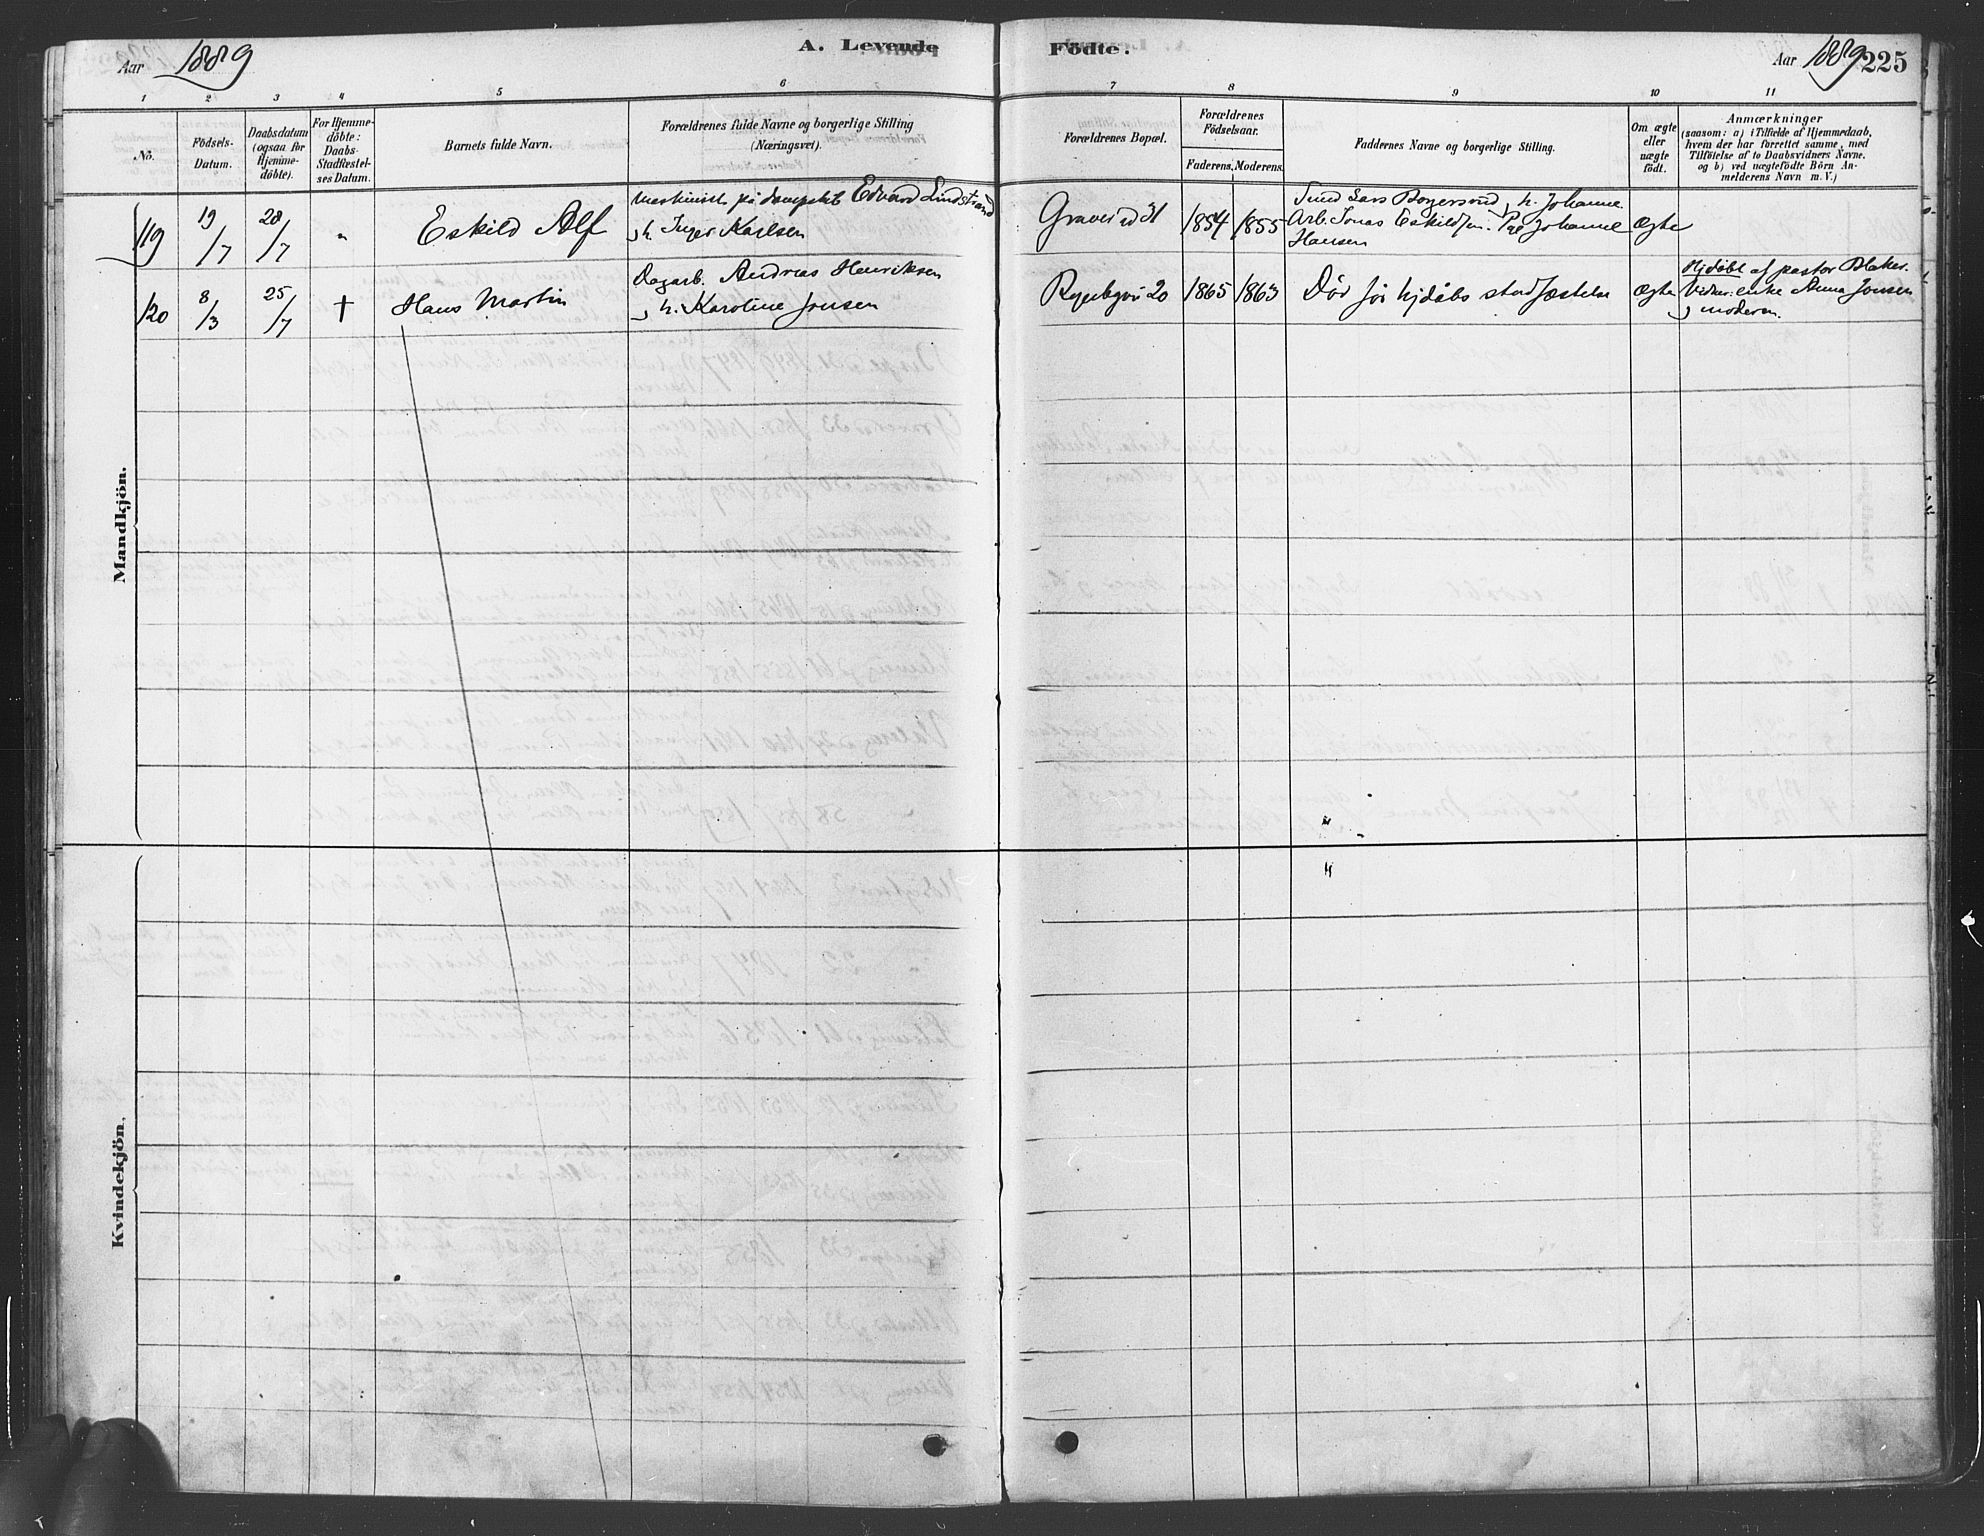 Aar 1889
A. Levende Födte.
Aar 1889 225
1 2 3 4 5 6 7 8 9 10 11
No.
Födsels-
Datum.
Daabsdatum
(ogsaa for
Hjemme-
döbte).
For Hjemme-
döbte:
Daabs-
Stadfæstel-
ses Datum.
Barnets fulde Navn.
Forældrenes fulde Navne og borgerlige Stilling
(Næringsvei).
Forældrenes Bopæl.
Forældrenes
Födselsaar.
Faderens. Moderens.
Faddernes Navne og borgerlige Stilling.
Om ægte
eller
uægte
födt.
Anmærkninger
(saasom: a) i Tilfælde af Hjemmedaab,
hvem der har forrettet samme, med
Tilföielse af to Daabsvidners Navne,
og b) ved uægtefödte Börn An-
melderens Navn m. V.)
Mandkjön.
119
19/7
28/7
"
Eskild Alf
Maskinist på dampskib Edvard Lindstrand
h. Inger Karlsen
1854
1855
Lars h. Johanne
Arb. Jonas Eskildsen. Johanne
Hansen
Ægte
120
8/3
25/7
†
Hans Martin
Dagarb. Andreas Henriksen
h. Karoline Jonsen
20
1865
1863
Död för hjdåbs stadfæstelse
Ægte
Hjdöbt af pastor Blaker.
Vidner: enke Anna Jonsen
og moderen.
"
"
Kvindekjön.